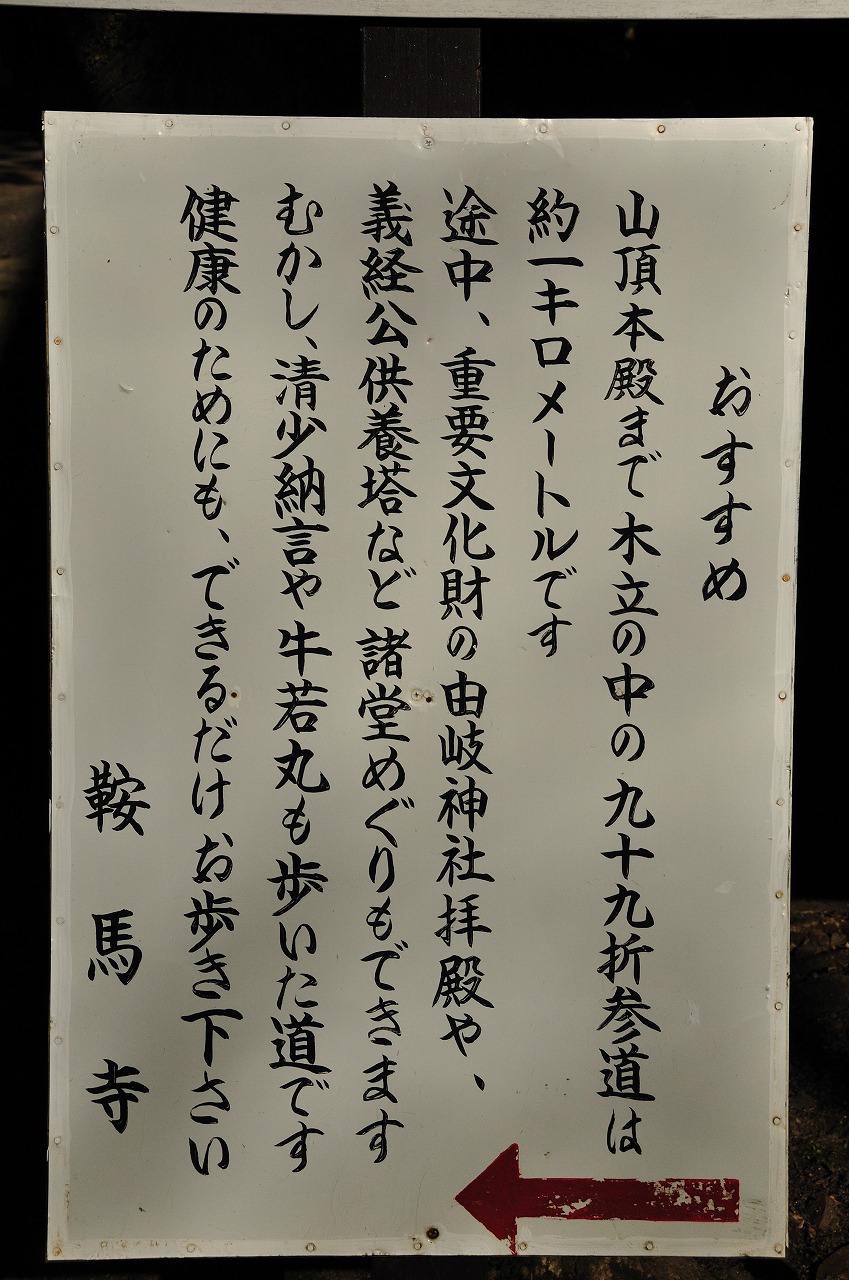 おすすめ
山頂本殿まで木立の中の九十九折参道は
約一キロメートルです
途中、重要文化財の由岐神社拝殿や、
義経公供養塔など諸堂めぐりもできます
むかし、清少納言や牛若丸も歩いた道です
健康のためにも、できるだけお歩き下さい
鞍馬寺